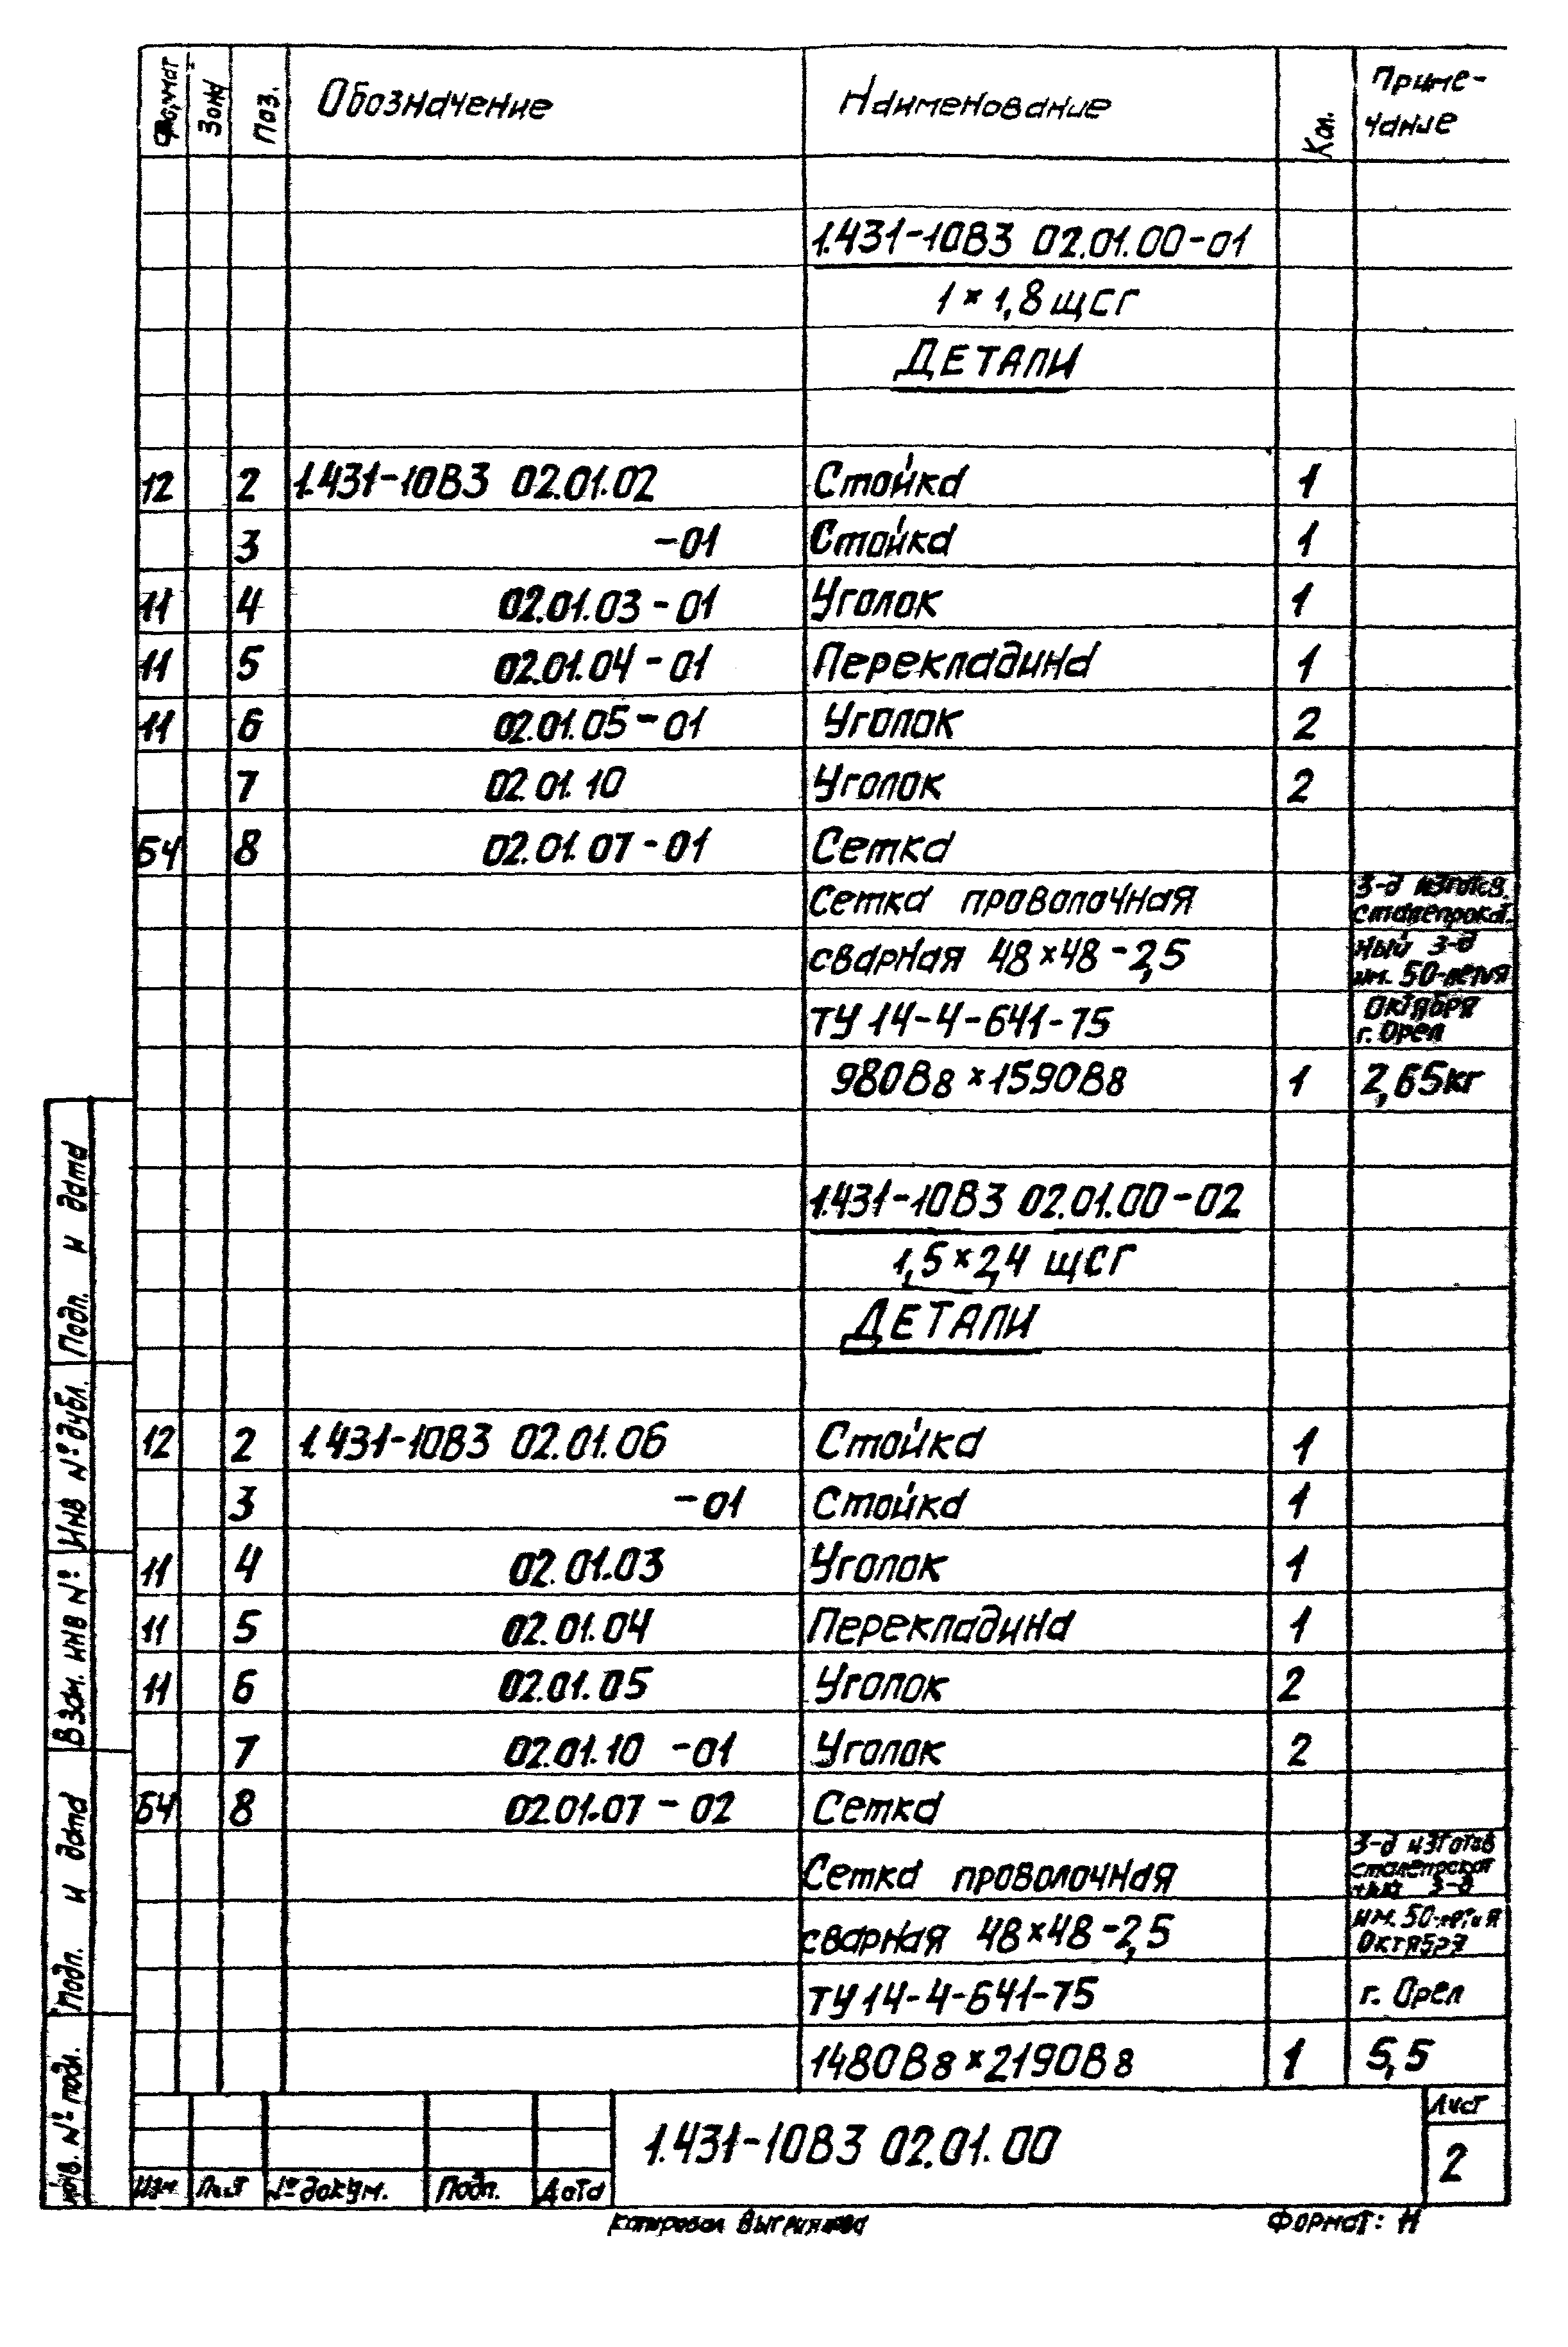 Формат Зона Поз. Обозначение Наименование Кол. Приме-
чание
1.431-10В3 02.01.00-01
1×1,8 щСГ
ДЕТАЛИ
12 2 1.431-10В3 02.01.02 Стойка 1
3 -01 Стойка 1
11 4 02.01.03-01 Уголок 1
11 5 02.01.04-01 Перекладина 1
11 6 02.01.05-01 Уголок 2
7 02.01.10 Уголок 2
БЧ 8 02.01.07-01 Сетка
Сетка проволочная з-д изготов.
сталепрокат-
сварная 48×48-2,5 ный з-д
им. 50-летия
ТУ 14-4-641-75 Октября
г. Орел
980В8×1590В8 1 2,65кг
1.431-10В3 02.01.00-02
1,5×2,4 щСГ
ДЕТАЛИ
12 2 1.431-10В3 02.01.06 Стойка 1
3 -01 Стойка 1
11 4 02.01.03 Уголок 1
11 5 02.01.04 Перекладина 1
11 6 02.01.05 Уголок 2
7 02.01.10 -01 Уголок 2
БЧ 8 02.01.07-02 Сетка
Сетка проволочная з-д изготов
сталепрокат
з-д
сварная 48×48-2,5 им. 50-летия
Октября
ТУ 14-4-641-75 г. Орел
1480В8×2190В8 1 5,5
Изм. Лист № докум. Подп. Дата
1.431-10В3 02.01.00
Лист
2
Копировал
Формат: 11
Инв. № подл. Подп. и дата Взам. инв № Инв № дубл. Подп. и дата